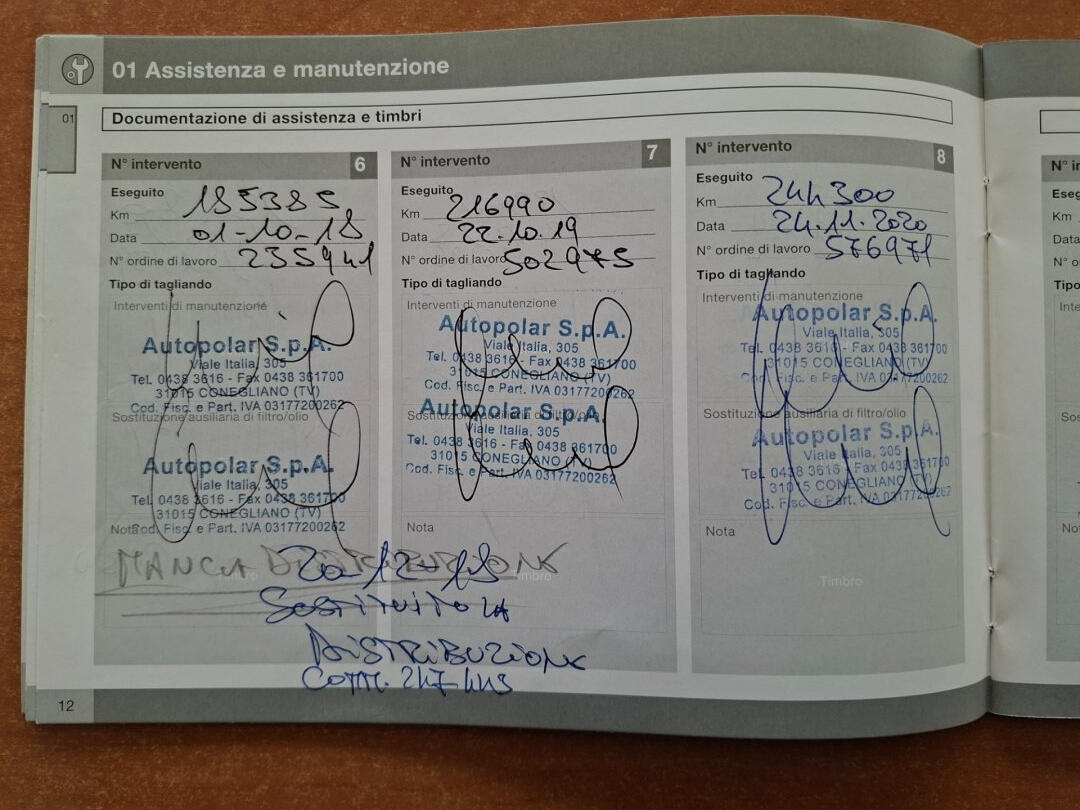 01 Assistenza e manutenzione
01
Documentazione di assistenza e timbri
N° intervento 6
Eseguito
Km 185385
Data 01-10-18
N° ordine di lavoro 235941
Tipo di tagliando
Interventi di manutenzione
Autopolar S.p.A.
Viale Italia, 305
Tel. 0438 3616 - Fax 0438 361700
31015 CONEGLIANO (TV)
Cod. Fisc. e Part. IVA 03177200262
Sostituzione ausiliaria di filtro/olio
Autopolar S.p.A.
Viale Italia, 305
Tel. 0438 3616 - Fax 0438 361700
31015 CONEGLIANO (TV)
Nota Cod. Fisc. e Part. IVA 03177200262
MANCA DISTRIBUZIONE
20-12-18
SOSTITUITO LA
DISTRIBUZIONE
COMM. 247443
N° intervento 7
Eseguito
Km 216990
Data 22.10.19
N° ordine di lavoro 502975
Tipo di tagliando
Interventi di manutenzione
Autopolar S.p.A.
Viale Italia, 305
Tel. 0438 3616 - Fax 0438 361700
31015 CONEGLIANO (TV)
Cod. Fisc. e Part. IVA 03177200262
Sostituzione ausiliaria di filtro/olio
Autopolar S.p.A.
Viale Italia, 305
Tel. 0438 3616 - Fax 0438 361700
31015 CONEGLIANO (TV)
Cod. Fisc. e Part. IVA 03177200262
Nota
Timbro
N° intervento 8
Eseguito
Km 244300
Data 24.11.2020
N° ordine di lavoro 576971
Tipo di tagliando
Interventi di manutenzione
Autopolar S.p.A.
Viale Italia, 305
Tel. 0438 3616 - Fax 0438 361700
31015 CONEGLIANO (TV)
Cod. Fisc. e Part. IVA 03177200262
Sostituzione ausiliaria di filtro/olio
Autopolar S.p.A.
Viale Italia, 305
Tel. 0438 3616 - Fax 0438 361700
31015 CONEGLIANO (TV)
Cod. Fisc. e Part. IVA 03177200262
Nota
Timbro
12
Km